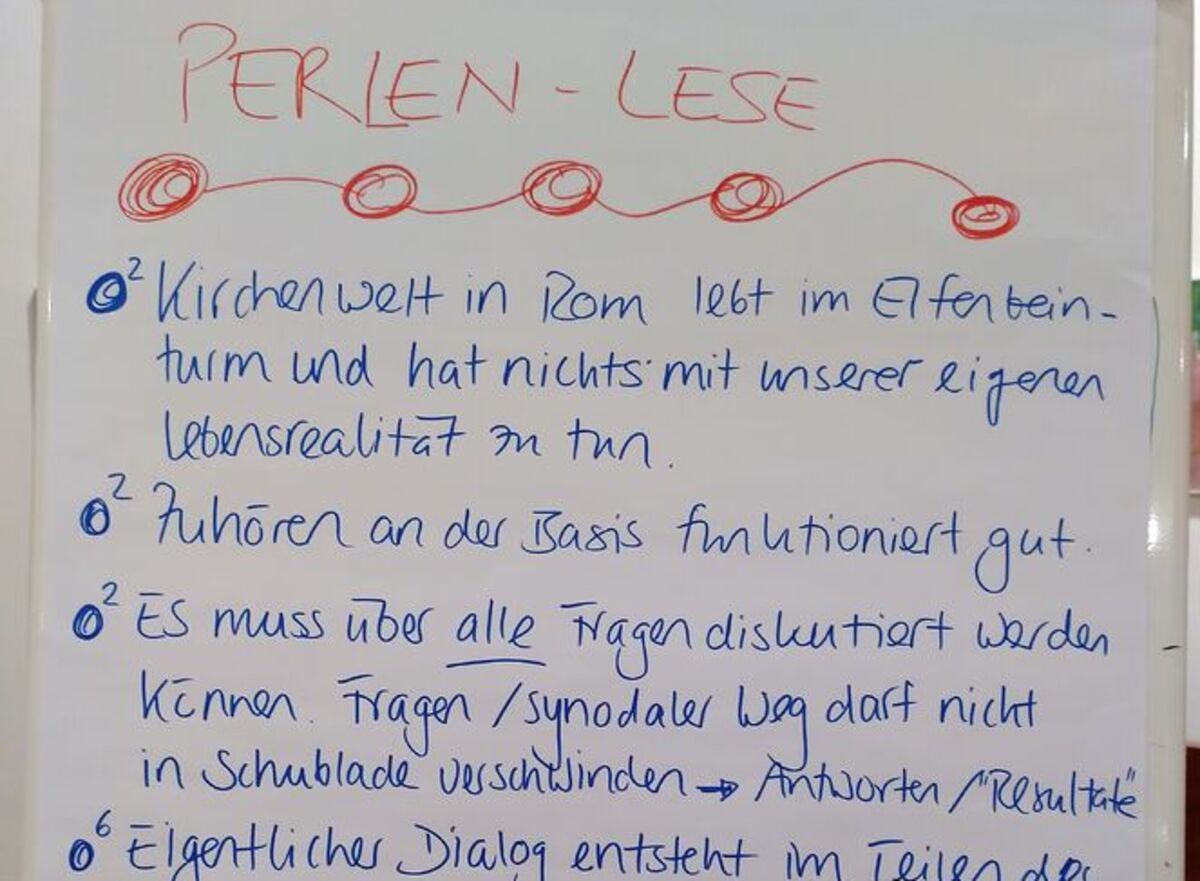 PERLEN - LESE
2 Kirchenwelt in Rom lebt im Elfenbein-
turm und hat nichts mit unserer eigenen
Lebensrealität zu tun.
2 Zuhören an der Basis funktioniert gut.
2 Es muss über alle Fragen diskutiert werden
können. Fragen / synodaler Weg darf nicht
in Schublade verschwinden → Antworten / "Resultate"
6 Eigentlicher Dialog entsteht im Teilen des